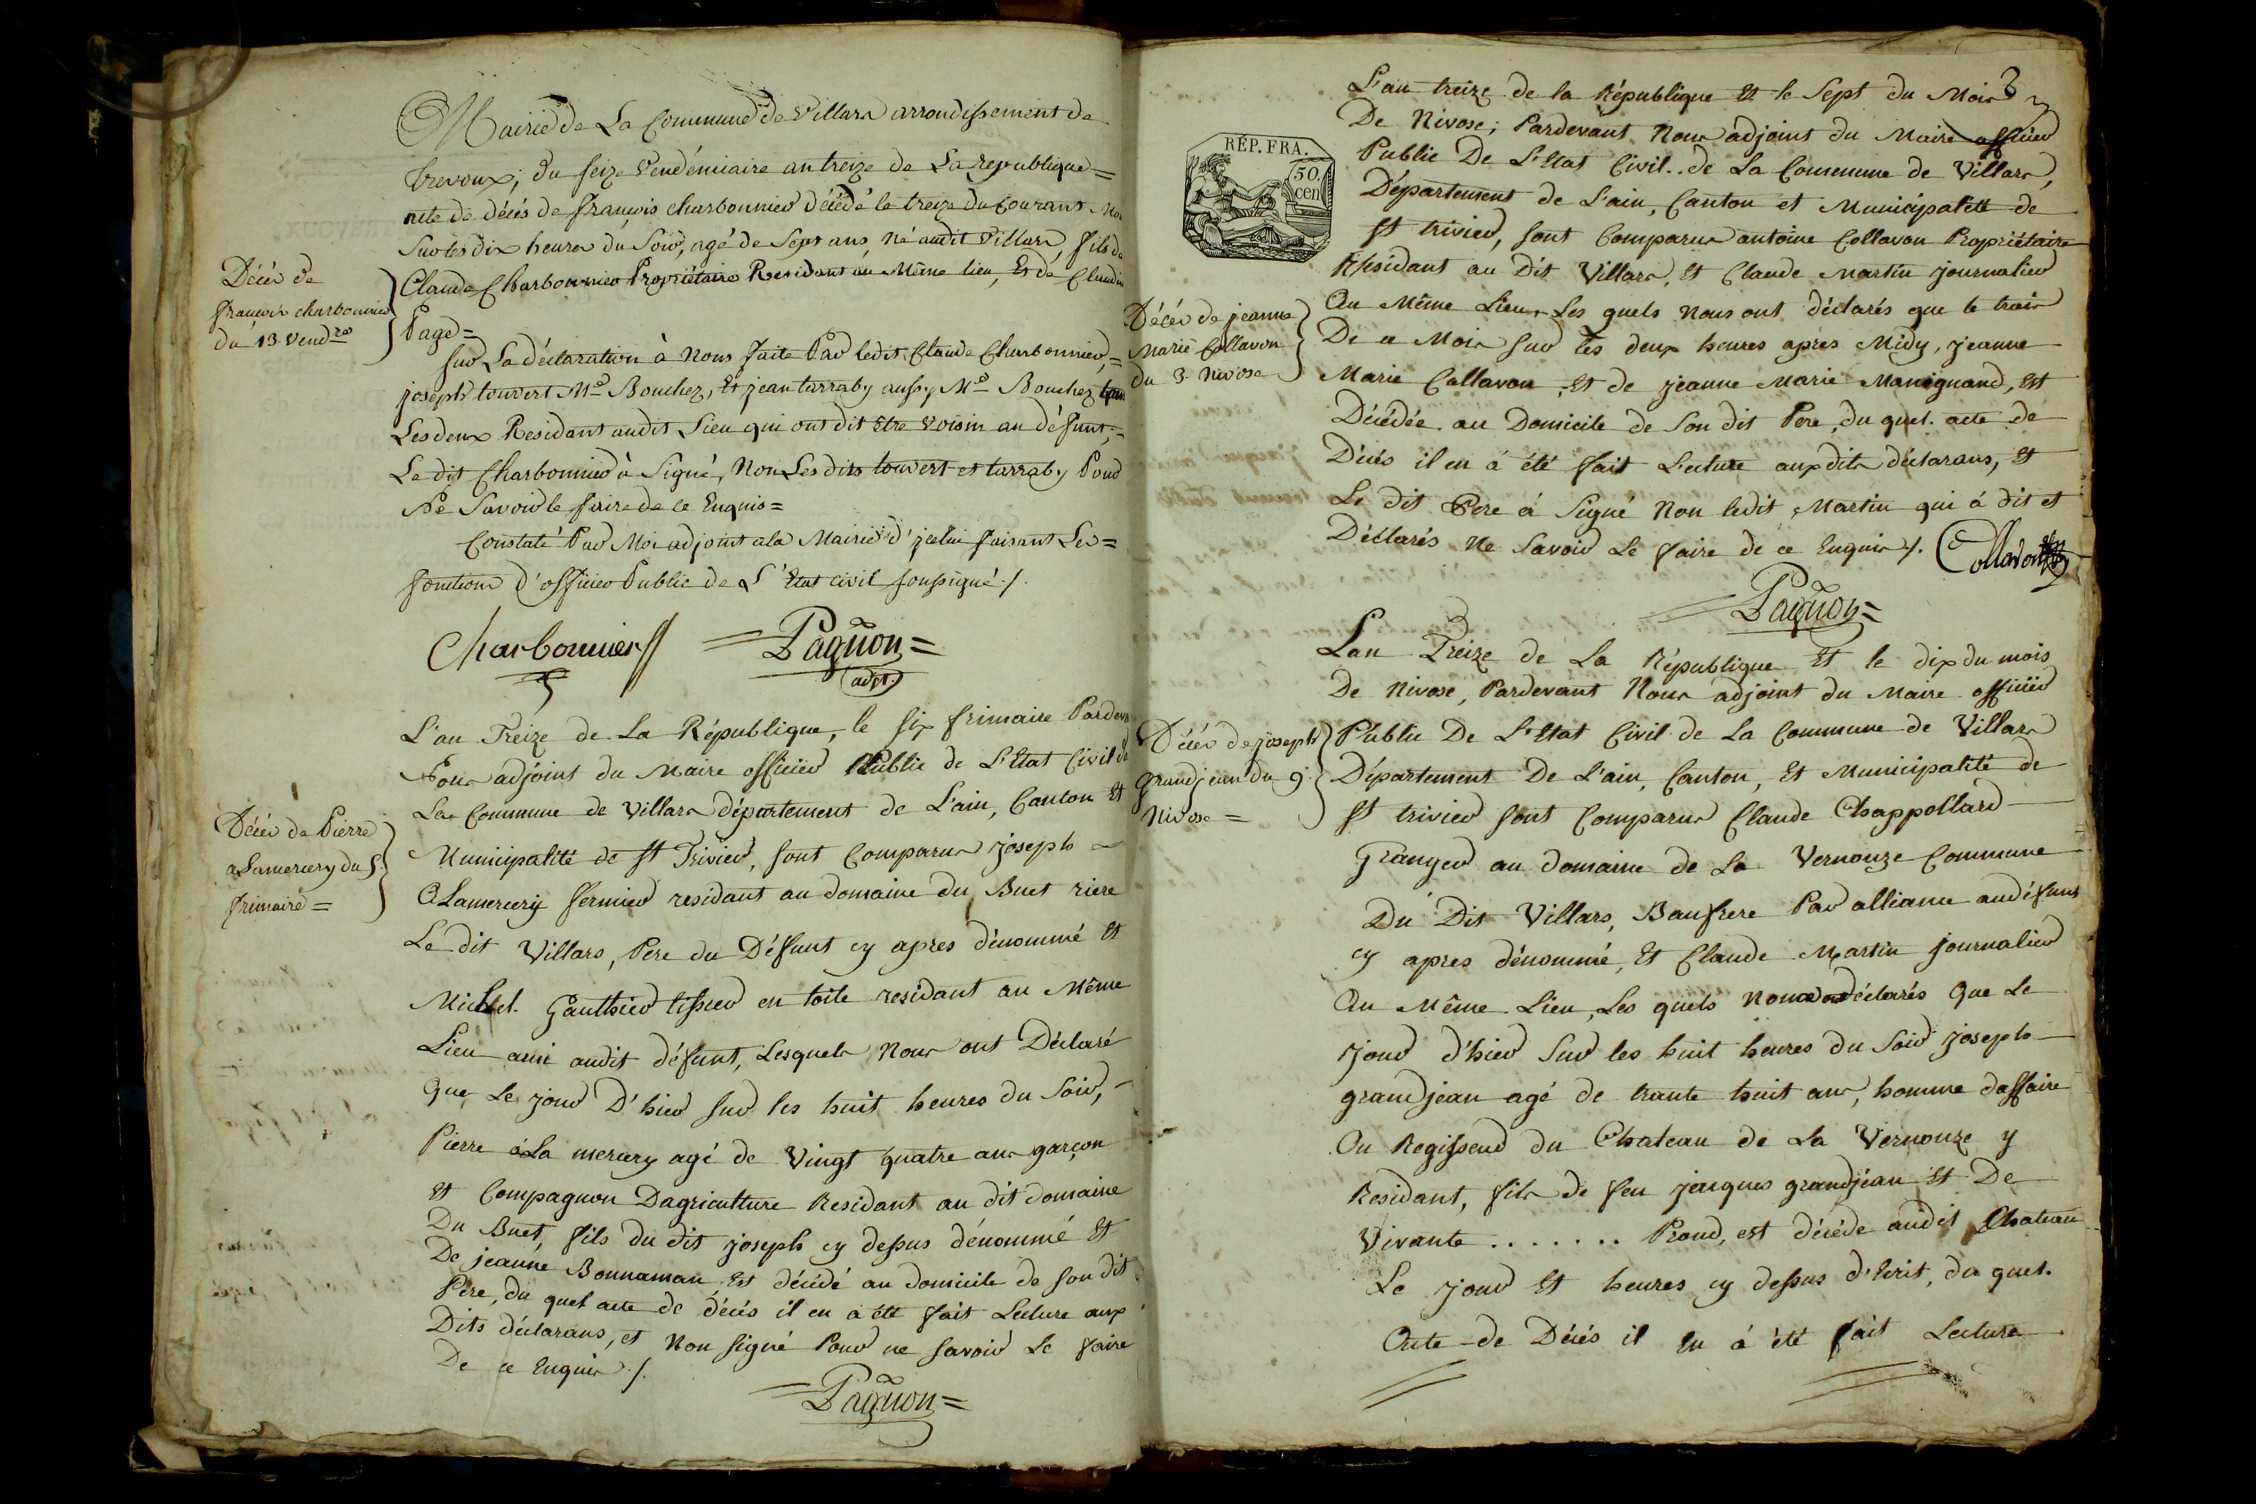 Mairie de La Commune de Villars arrondissement de
Trevoux; du seize Vendémiaire an treize de La republique=
acte de décés de françois charbonnier décédé le treize du courant Mois
Sur les dix heures du Soir, agé de Sept ans né audit Villars, fils de
Décés de
françois charbonnier
du 13 Vend.re
Claude Charbonnier Propriétaire Residant au Même lieu, Et de Claudine
Page=
Sur La déclaration à Nous faite Par ledit Claude Charbonnier,=
joseph touvert M.d Boucher, Et jean tarraby aussy M.d Boucher tous
Les deux Residant audit Lieu qui ont dit Etre Voisin au défunt;=
Le dit Charbonnier à Signé, Non Les dits touvert et tarraby Pour
Ne Savoir le faire de ce Enquis=
Constaté Par Moi adjoint a la Mairie d'jcelui faisant Les=
fonctions d'officier Public de L'Etat civil soussigné./.
Charbonnier
=Pagnon=
adjt.
L'an Treize de La République, le six frimaire Pardevant
Nous adjoint du Maire officier Public de L'Etat Civil de
La Commune de Villars département de L'ain, Canton Et
Décés de Pierre
aLamercery du 5.
frimaire=
Municipalité de St Trivier, sont Comparus joseph
aLamercery fermier residant au domaine du Buet riere
Le dit Villars, Pere du Défunt cy apres dénommé Et
Michel Gauthier tissier en toile residant au Même
Lieu ami audit défunt, Lesquels Nous ont Déclaré
Que Le jour D'hier sur les huit heures du Soir,
Pierre aLa mercery agé de Vingt quatre ans garçon
Et Compagnon Dagriculture Residant au dit domaine
Du Buet, fils du dit joseph cy dessus dénommé Et
De jeanne Bonnaman Est décédé au domicile de son dit
Pere, du quel acte de décés il en a été fait Lecture aux
Dits déclarans, et Non signé Pour ne savoir Le faire
De ce Enquis./.
=Pagnon=
3
L'an treize de la République Et le Sept du Mois
De Nivose, Pardevant Nous adjoint du Maire officier
Public De L'Etat Civil. de La Commune de Villars,
RÉP. FRA.
50.
cen
Département de L'ain, Canton et Municipalité de
St trivier, sont Comparus antoine Collavon Propriétaire
Résidant au Dit Villars, Et Claude Martin journalier
Décés de jeanne
Marie Collavon
du 3. Nivose
Au Même Lieu, Les quels Nous ont déclarés que le trois
De ce Mois sur les deux heures apres Midy, jeanne
Marie Collavon, Et de jeanne Marie Manignand, Est
Décédée au Domicile de Son dit Pere, du quel. acte de
Décés il en á été fait Lecture aux dits déclarans, Et
Le dit Pere á Signé Non ledit Martin qui á dit et
Déclarés Ne Savoir Le faire de ce Enquis/. Collavon
=Pagnon=
L'an Treize de La République Et le dix du mois
De Nivose, Pardevant Nous adjoint du Maire officier
Décés de joseph
grandjean du 9.
Nivose=
Public De L'Etat Civil de La Commune de Villars
Département De L'ain, Canton, Et Municipalité de
St trivier sont Comparus Claude Chappollard
Granger au domaine de La Vernouze Commune
Du Dit Villars, Baufrere Par alliance au défunt
cy apres dénommé, Et Claude Martin journalier
Au Même Lieu, Les quels Nous déclarés Que Le
jour d'hier Sur les huit heures du Soir joseph
grandjean agé de trante huit ans, homme daffaire
Ou Regisseur du Chateau de La Vernouze y
Residant, fils de feu jacques grandjean Et De
Vivante ....... Proud, est décédé audit Chateau
Le jour Et heures cy dessus d'Ecrit, du quel.
Acte de Décés il en á été fait Lecture